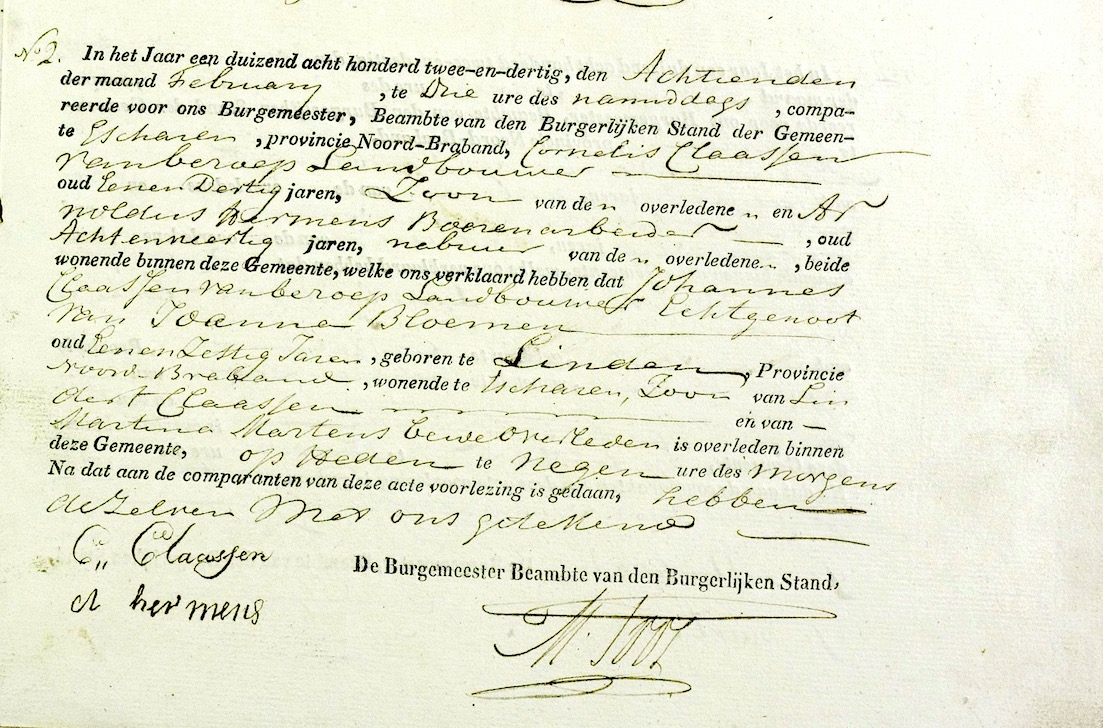 No 2. In het Jaar een duizend acht honderd twee-en-dertig, den Achtienden
der maand February , te Drie ure des namiddags , compa-
reerde voor ons Burgemeester, Beambte van den Burgerlijken Stand der Gemeen-
te Escharen , provincie Noord-Braband, Cornelis Claassen
van beroep Landbouwer
oud Eenen Dertig jaren, Zoon van de n overledene n en Ar
noldus Hermens Boerenarbeider , oud
Achtenveertig jaren, nabuur van de n overledene n , beide
wonende binnen deze Gemeente, welke ons verklaard hebben dat Johannes
Claassen van beroep Landbouwer Echtgenoot
van Joanna Bloemen
oud Eenen Zettig Jaren , geboren te Linden , Provincie
Noord-Braband , wonende te Escharen, Zoon van Lin
dert Claassen en van
Martina Martens bewe Overleden is overleden binnen
deze Gemeente, op Heden te Negen ure des Morgens
Na dat aan de comparanten van deze acte voorlezing is gedaan, hebben
de Zelven Met ons getekend
C,, Claassen
De Burgemeester Beambte van den Burgerlijken Stand,
A hermens